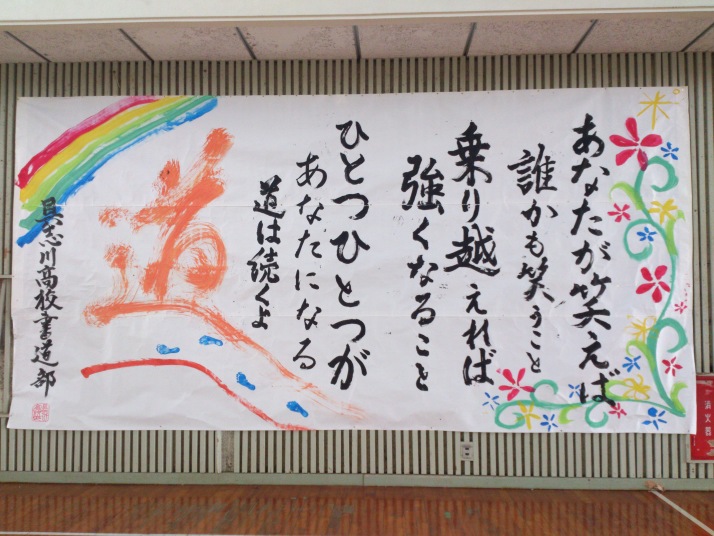 あなたが笑えば
誰かも笑うこと
乗り越えれば
強くなること
ひとつひとつが
あなたになる
道は続くよ
道
具志川高校書道部
消火器